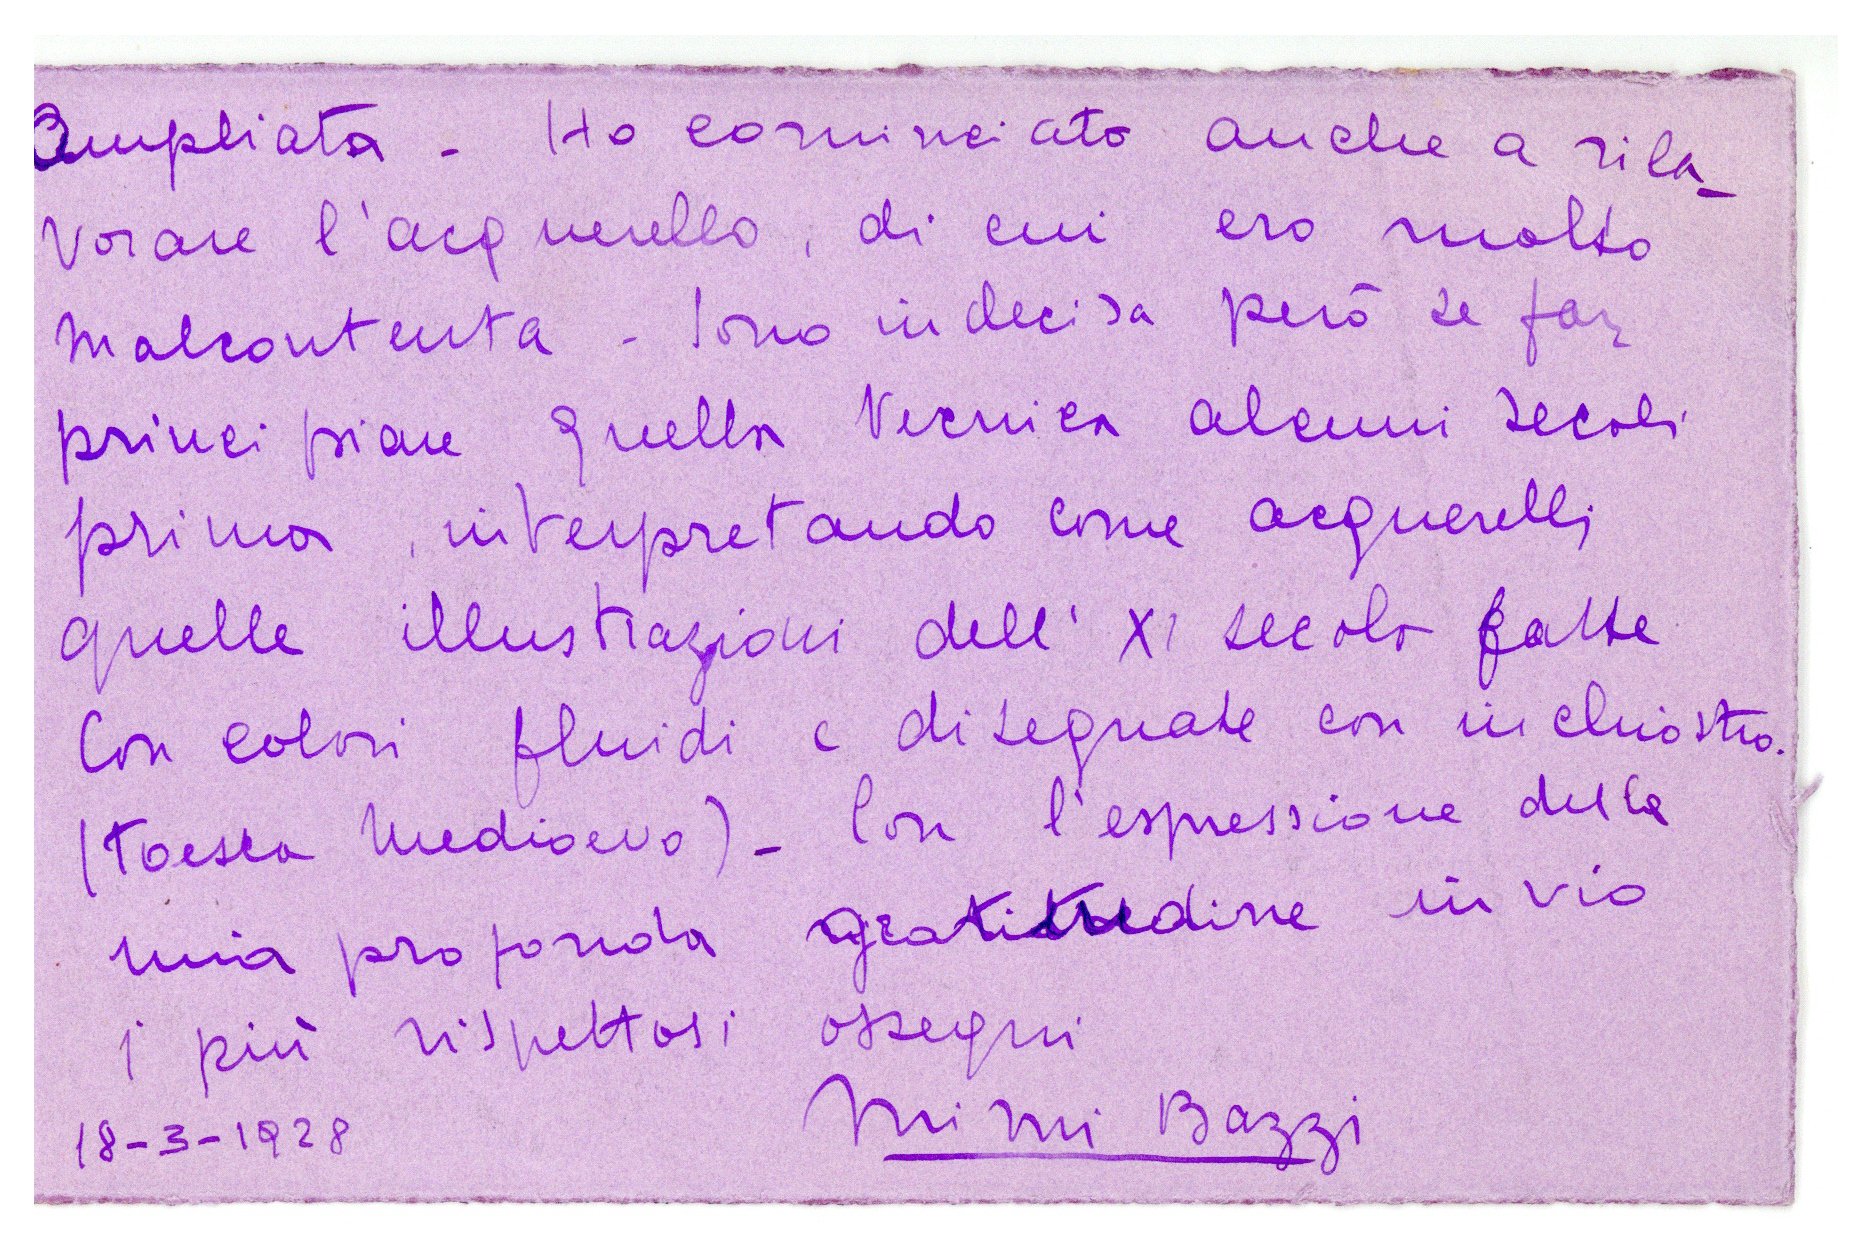 Ampliata - Ho cominciato anche a rila-
vorare l'acquerello, di cui ero molto
malcontenta - Sono indecisa però se far
principiare quella tecnica alcuni secoli
prima, interpretando come acquerelli
quelle illustrazioni dell' XI secolo fatte
con colori fluidi e disegnate con inchiostro.
(Toesca Medioevo) - Con l'espressione della
mia profonda gratitudine invio
i più rispettosi ossequi
Mimi Bazzi
18-3-1928